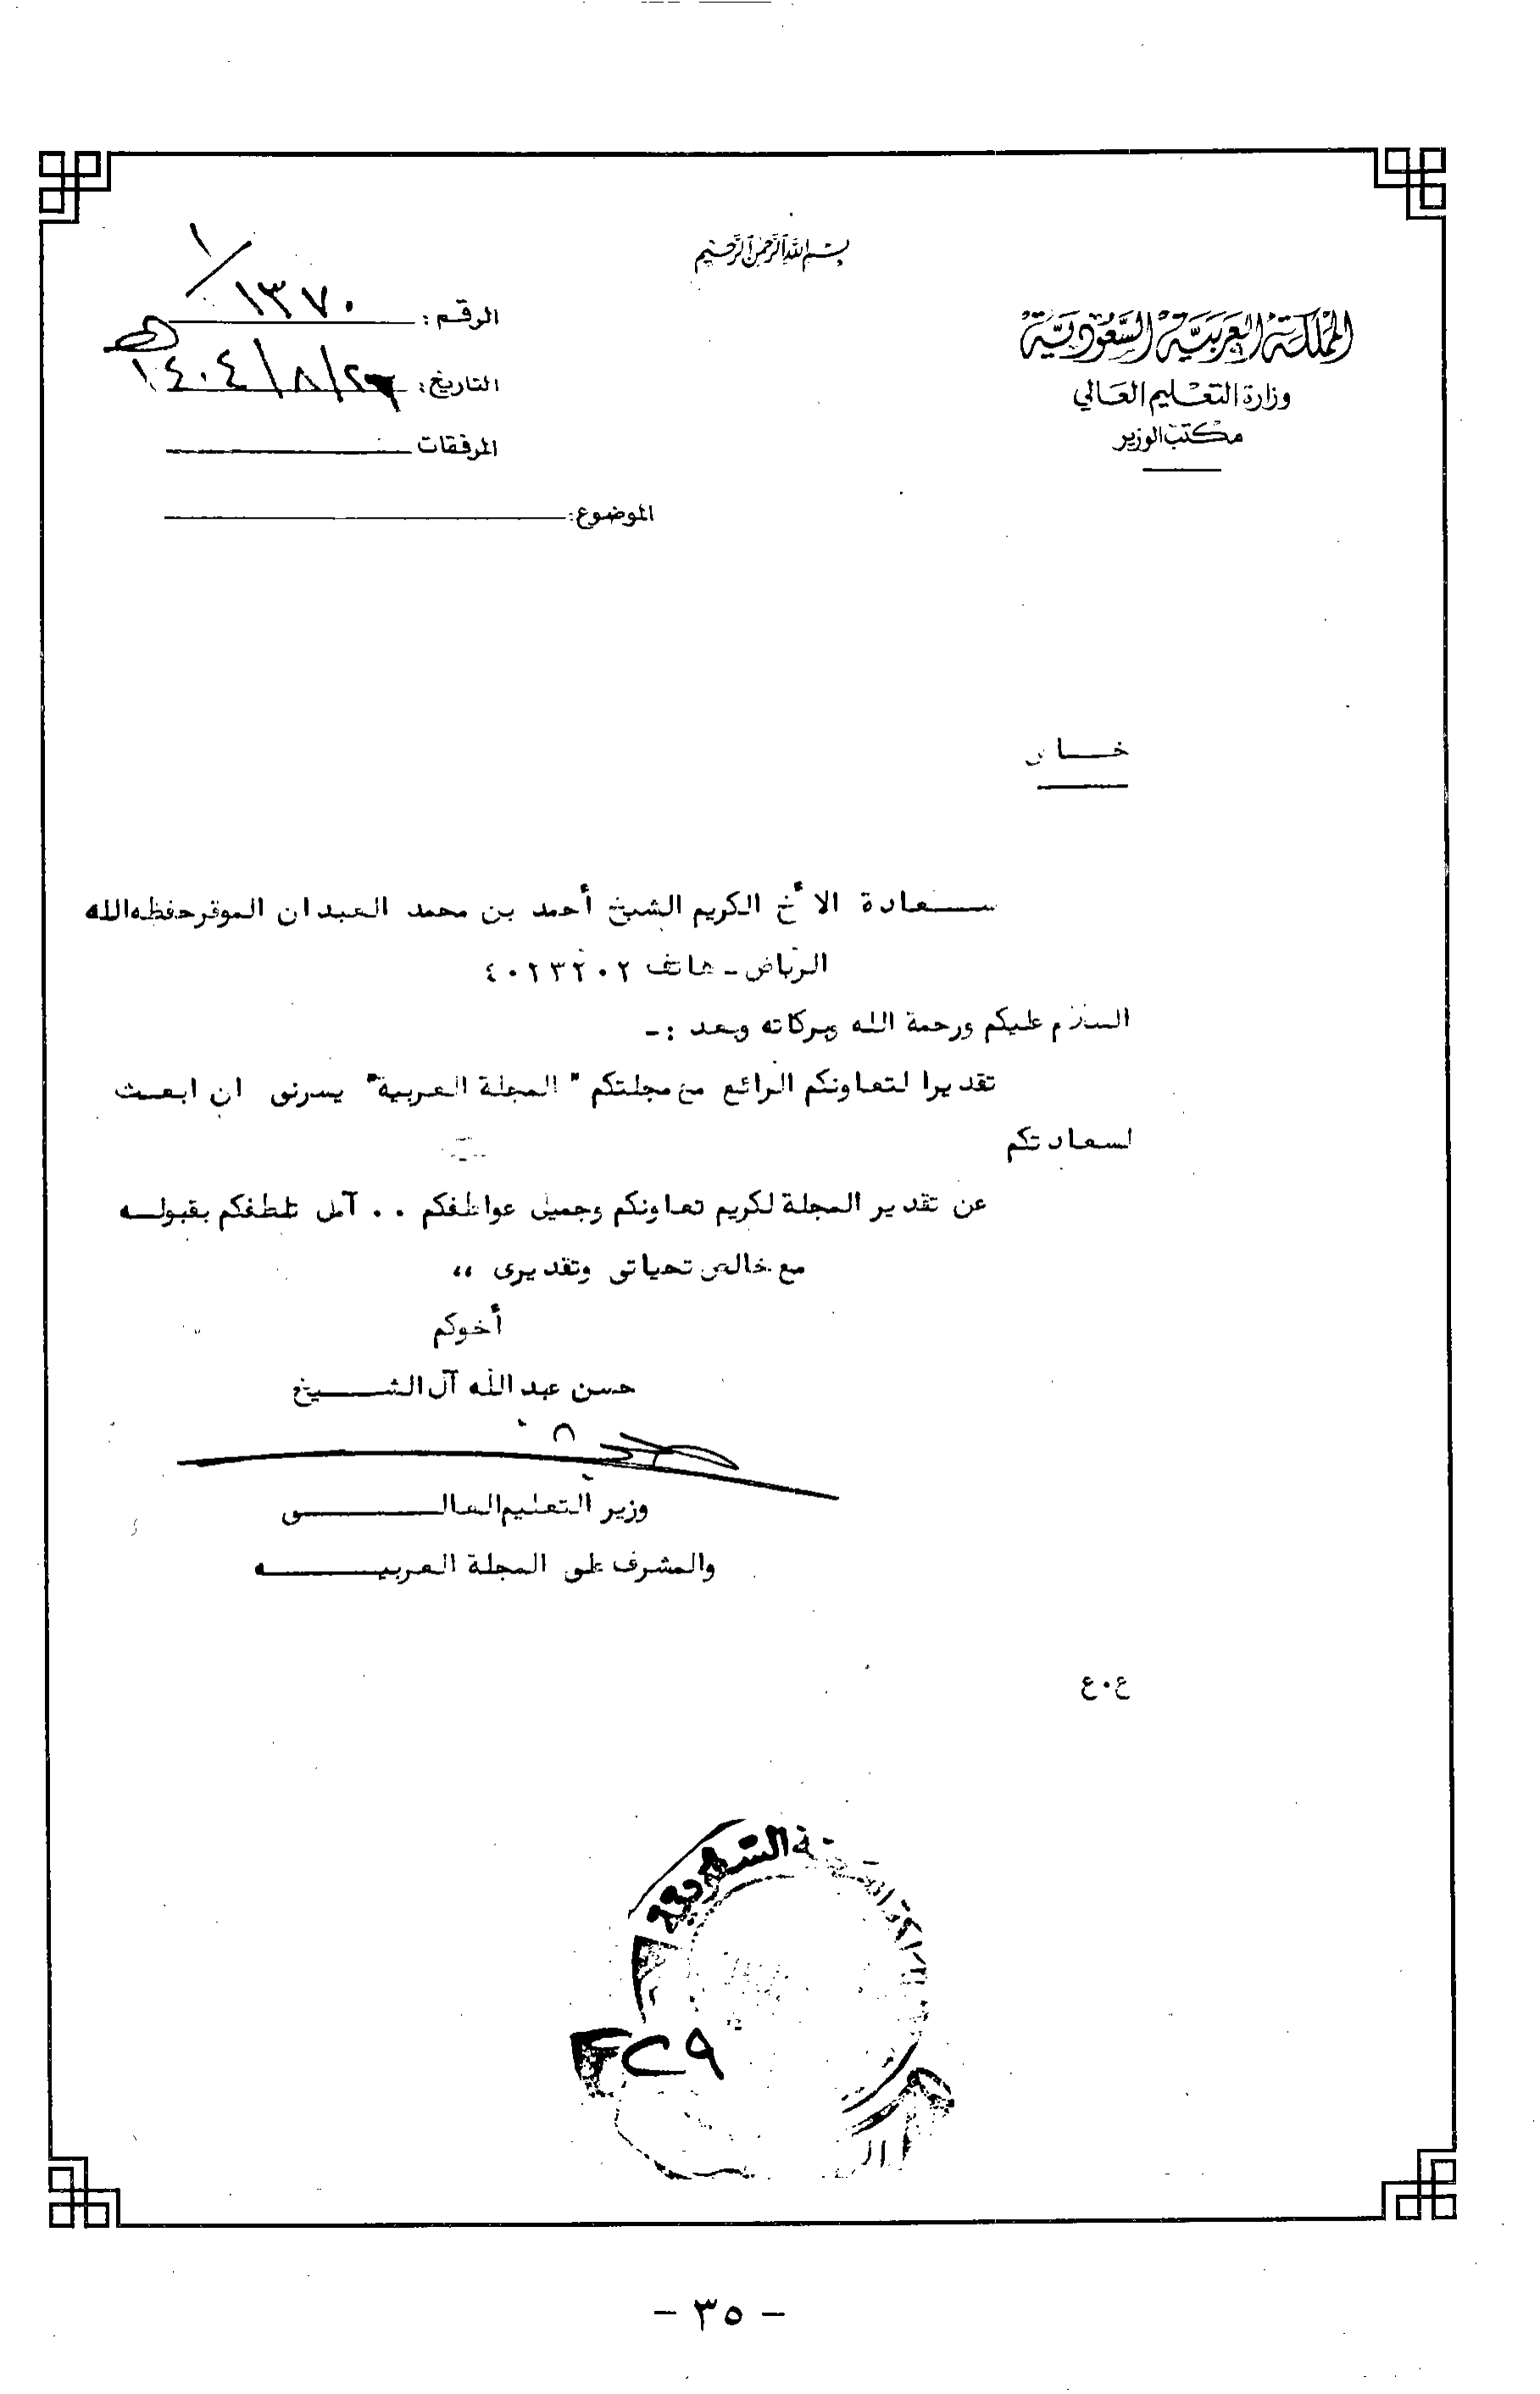 بسم الله الرحمن الرحيم
المملكة العربية السعودية
وزارة التعليم العالي
مكتب الوزير
الرقم: ١٣٧٠/١
التاريخ: /٨/١٤٠٤
المرفقات
الموضوع:
خـــاص
ســـعادة الأخ الكريم الشيخ أحمد بن محمد العبدان الموقر حفظه الله
الرياض - هاتف ٤٠٢٣٢٠٢
السلام عليكم ورحمة الله وبركاته وبعد :-
تقديرا لتعاونكم الرائع مع مجلتكم "المجلة العربية" يسرنى ان ابعث
لسعادتكم
عن تقدير المجلة لكريم تعاونكم وجميل عواطفكم .. آمل تلطفكم بقبولــه
مع خالص تحياتى وتقديرى ،،
أخوكم
حسن عبد الله آل الشـــيخ
وزير التعليم العالـــى
والمشرف على المجلة العربيـــه
ع٠ع
السعودية
- ٣٥ -